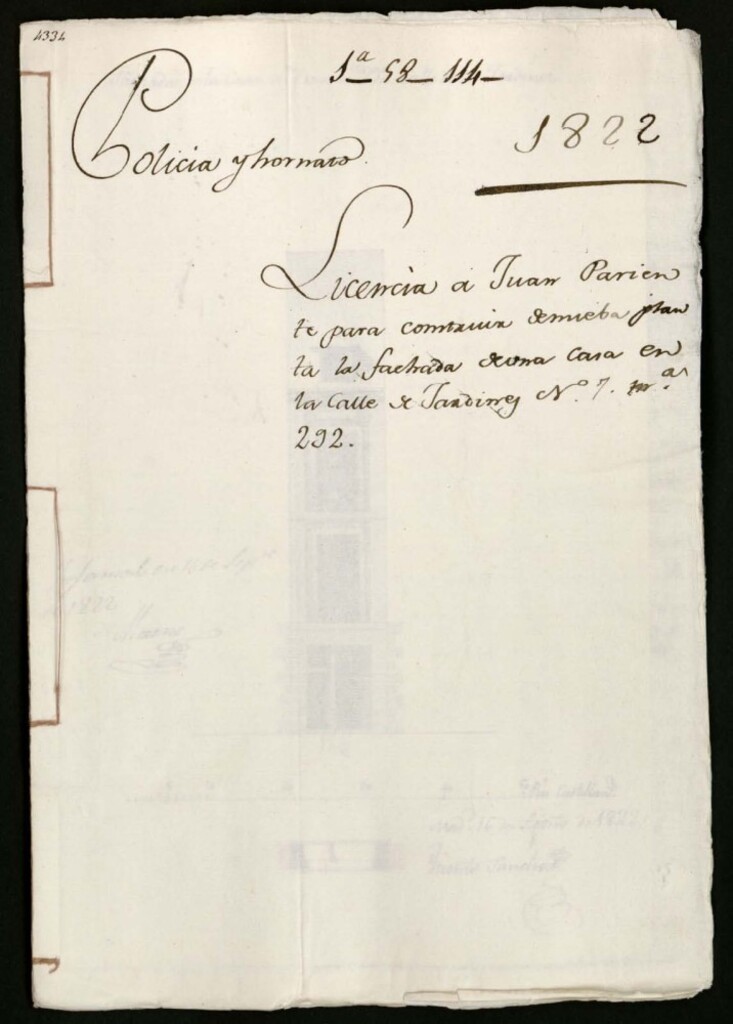 4334
1ª - 58 - 114 -
Policia y hornato.
1822
Licencia a Juan Parien
te para construir de nueba plan
ta la fachada de una casa en
la Calle de Jardines Nº 7. mª
292.
1822